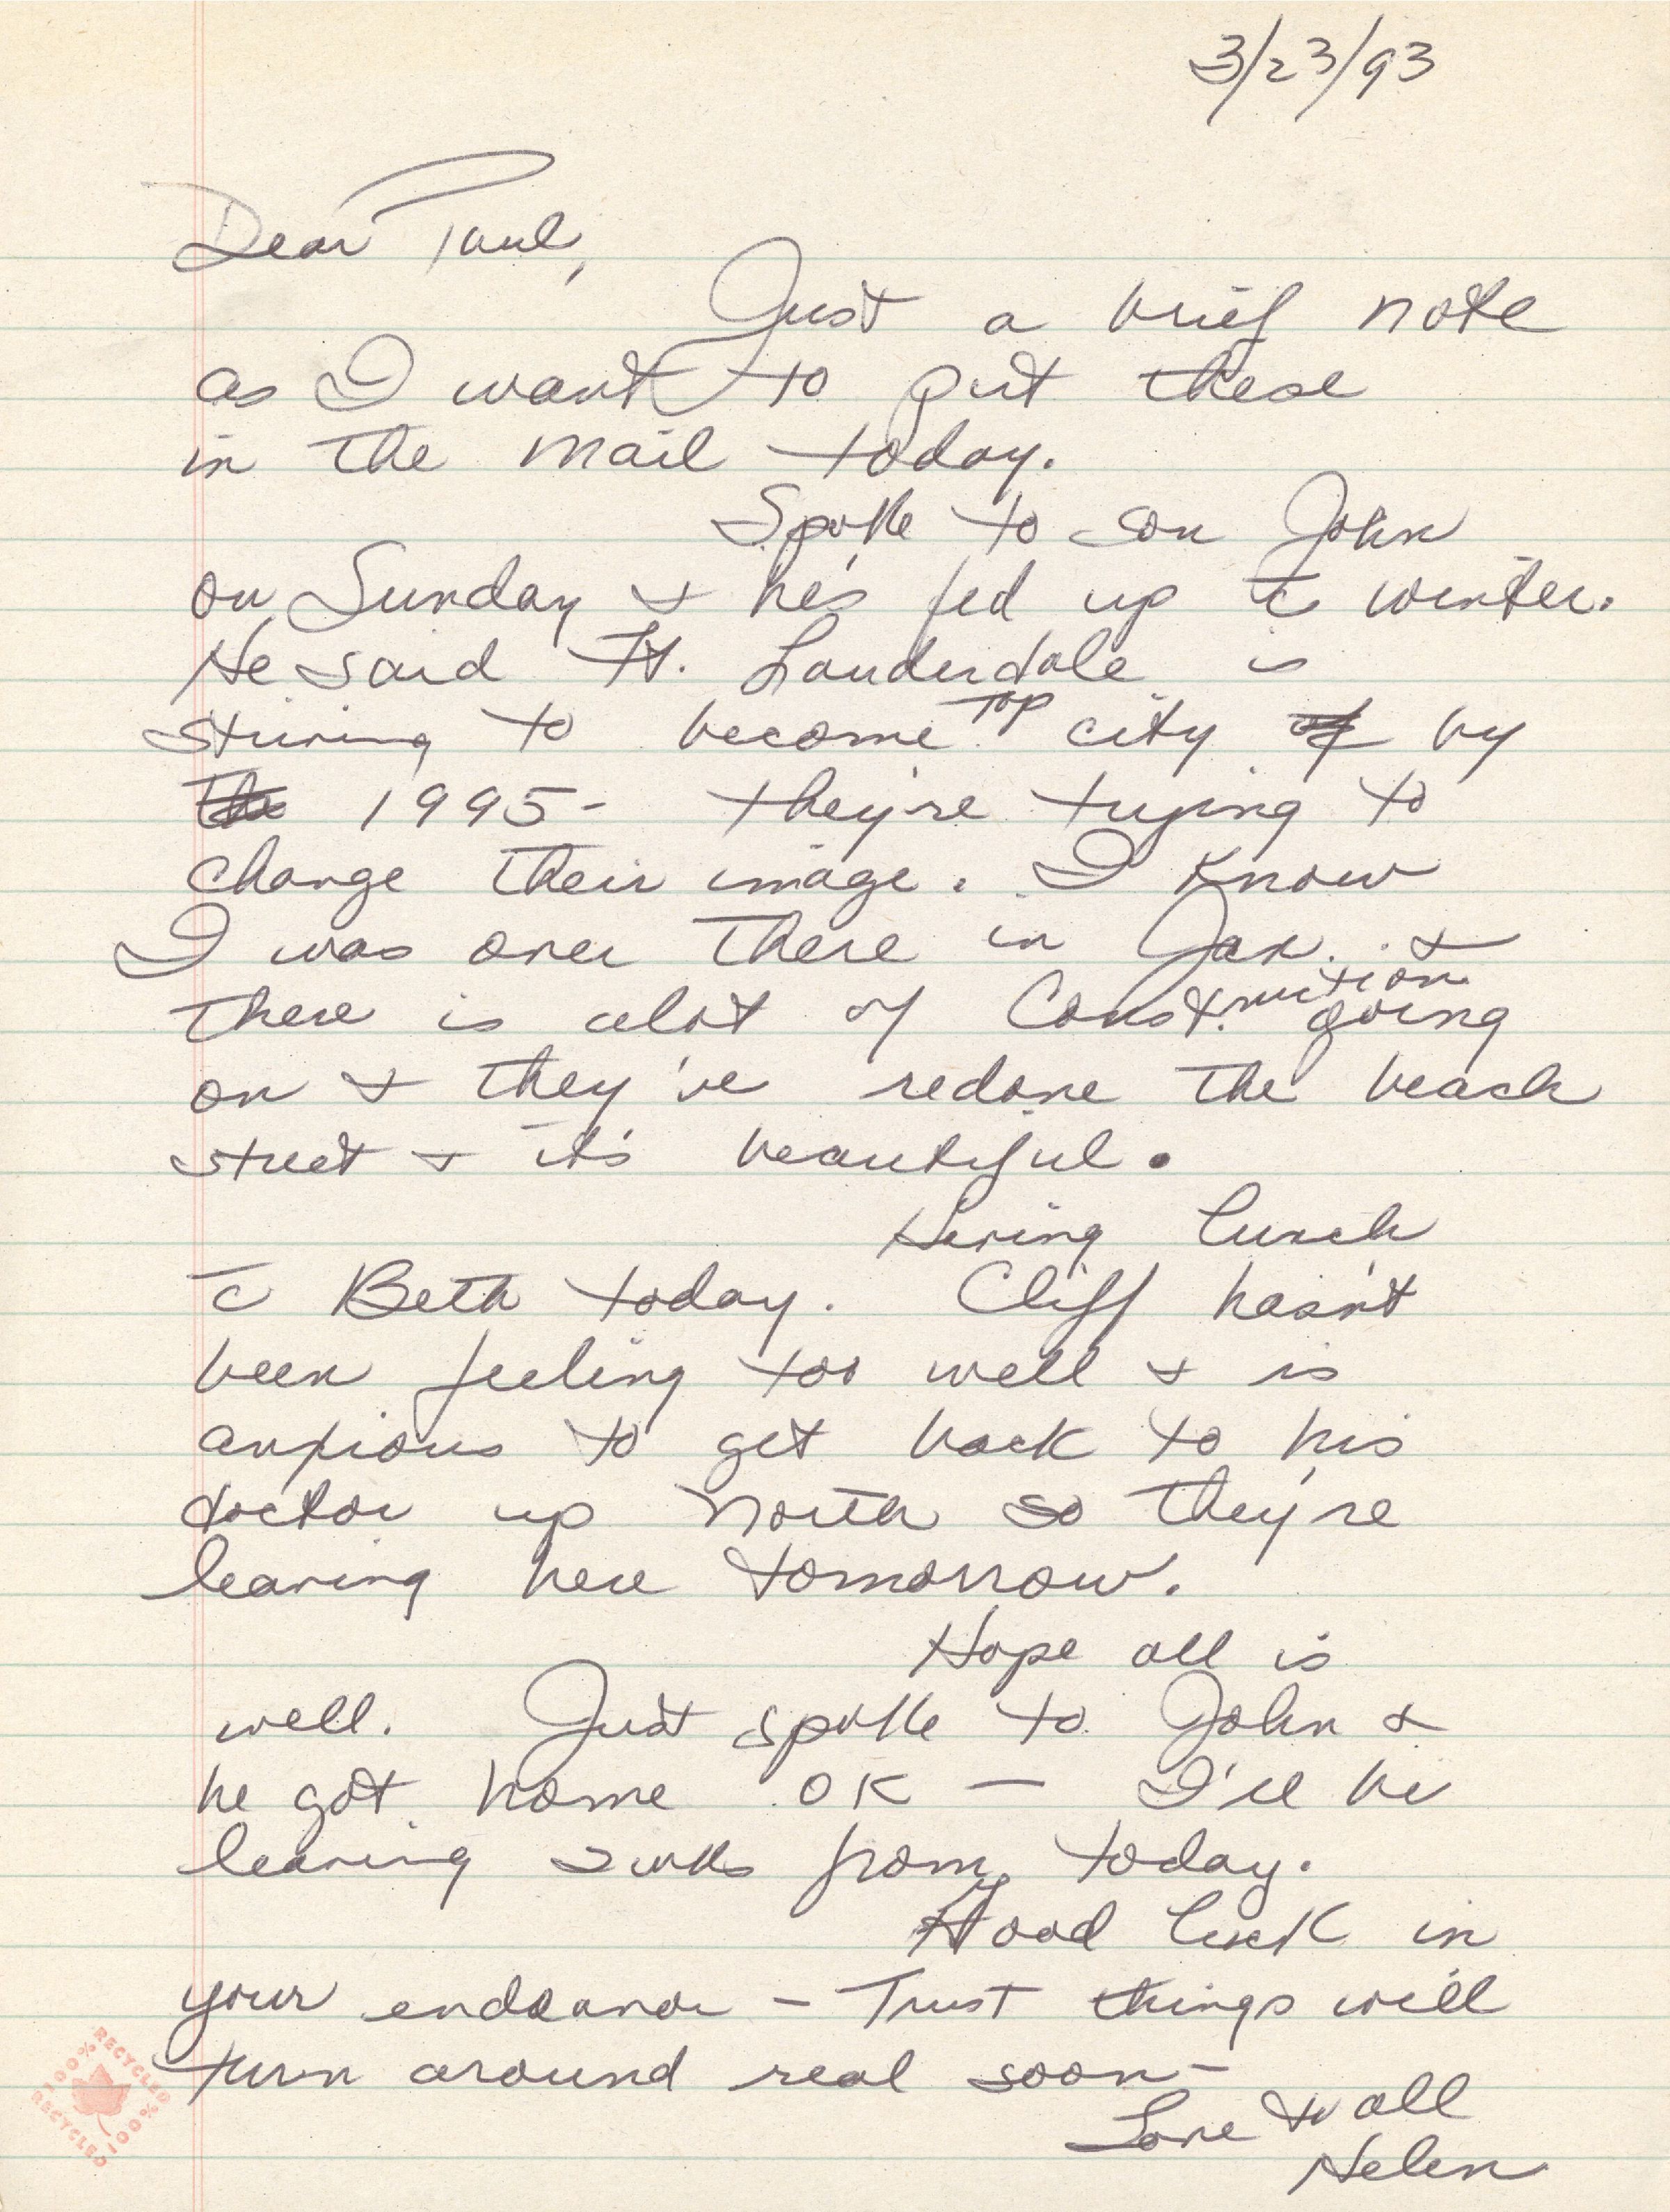 3/23/93
Dear Paul,
Just a brief note
as I want to put these
in the mail today.
Spoke to son John
on Sunday & he's fed up c̄ winter.
He said Ft. Lauderdale is
striving to become top city of by
the 1995- they're trying to
change their image. I know
I was over there in Jan. &
there is alot of Construction going
on & they've redone the beach
street & it's beautiful.
Having lunch
c̄ Beth today. Cliff hasn't
been feeling too well & is
anxious to get back to his
doctor up North so they're
leaving here tomorrow.
Hope all is
well. Just spoke to John &
he got home OK — I'll be
leaving 2 wks from today.
Good luck in
your endeavor – Trust things will
turn around real soon –
Love to all
Helen
100% RECYCLED 100% RECYCLED